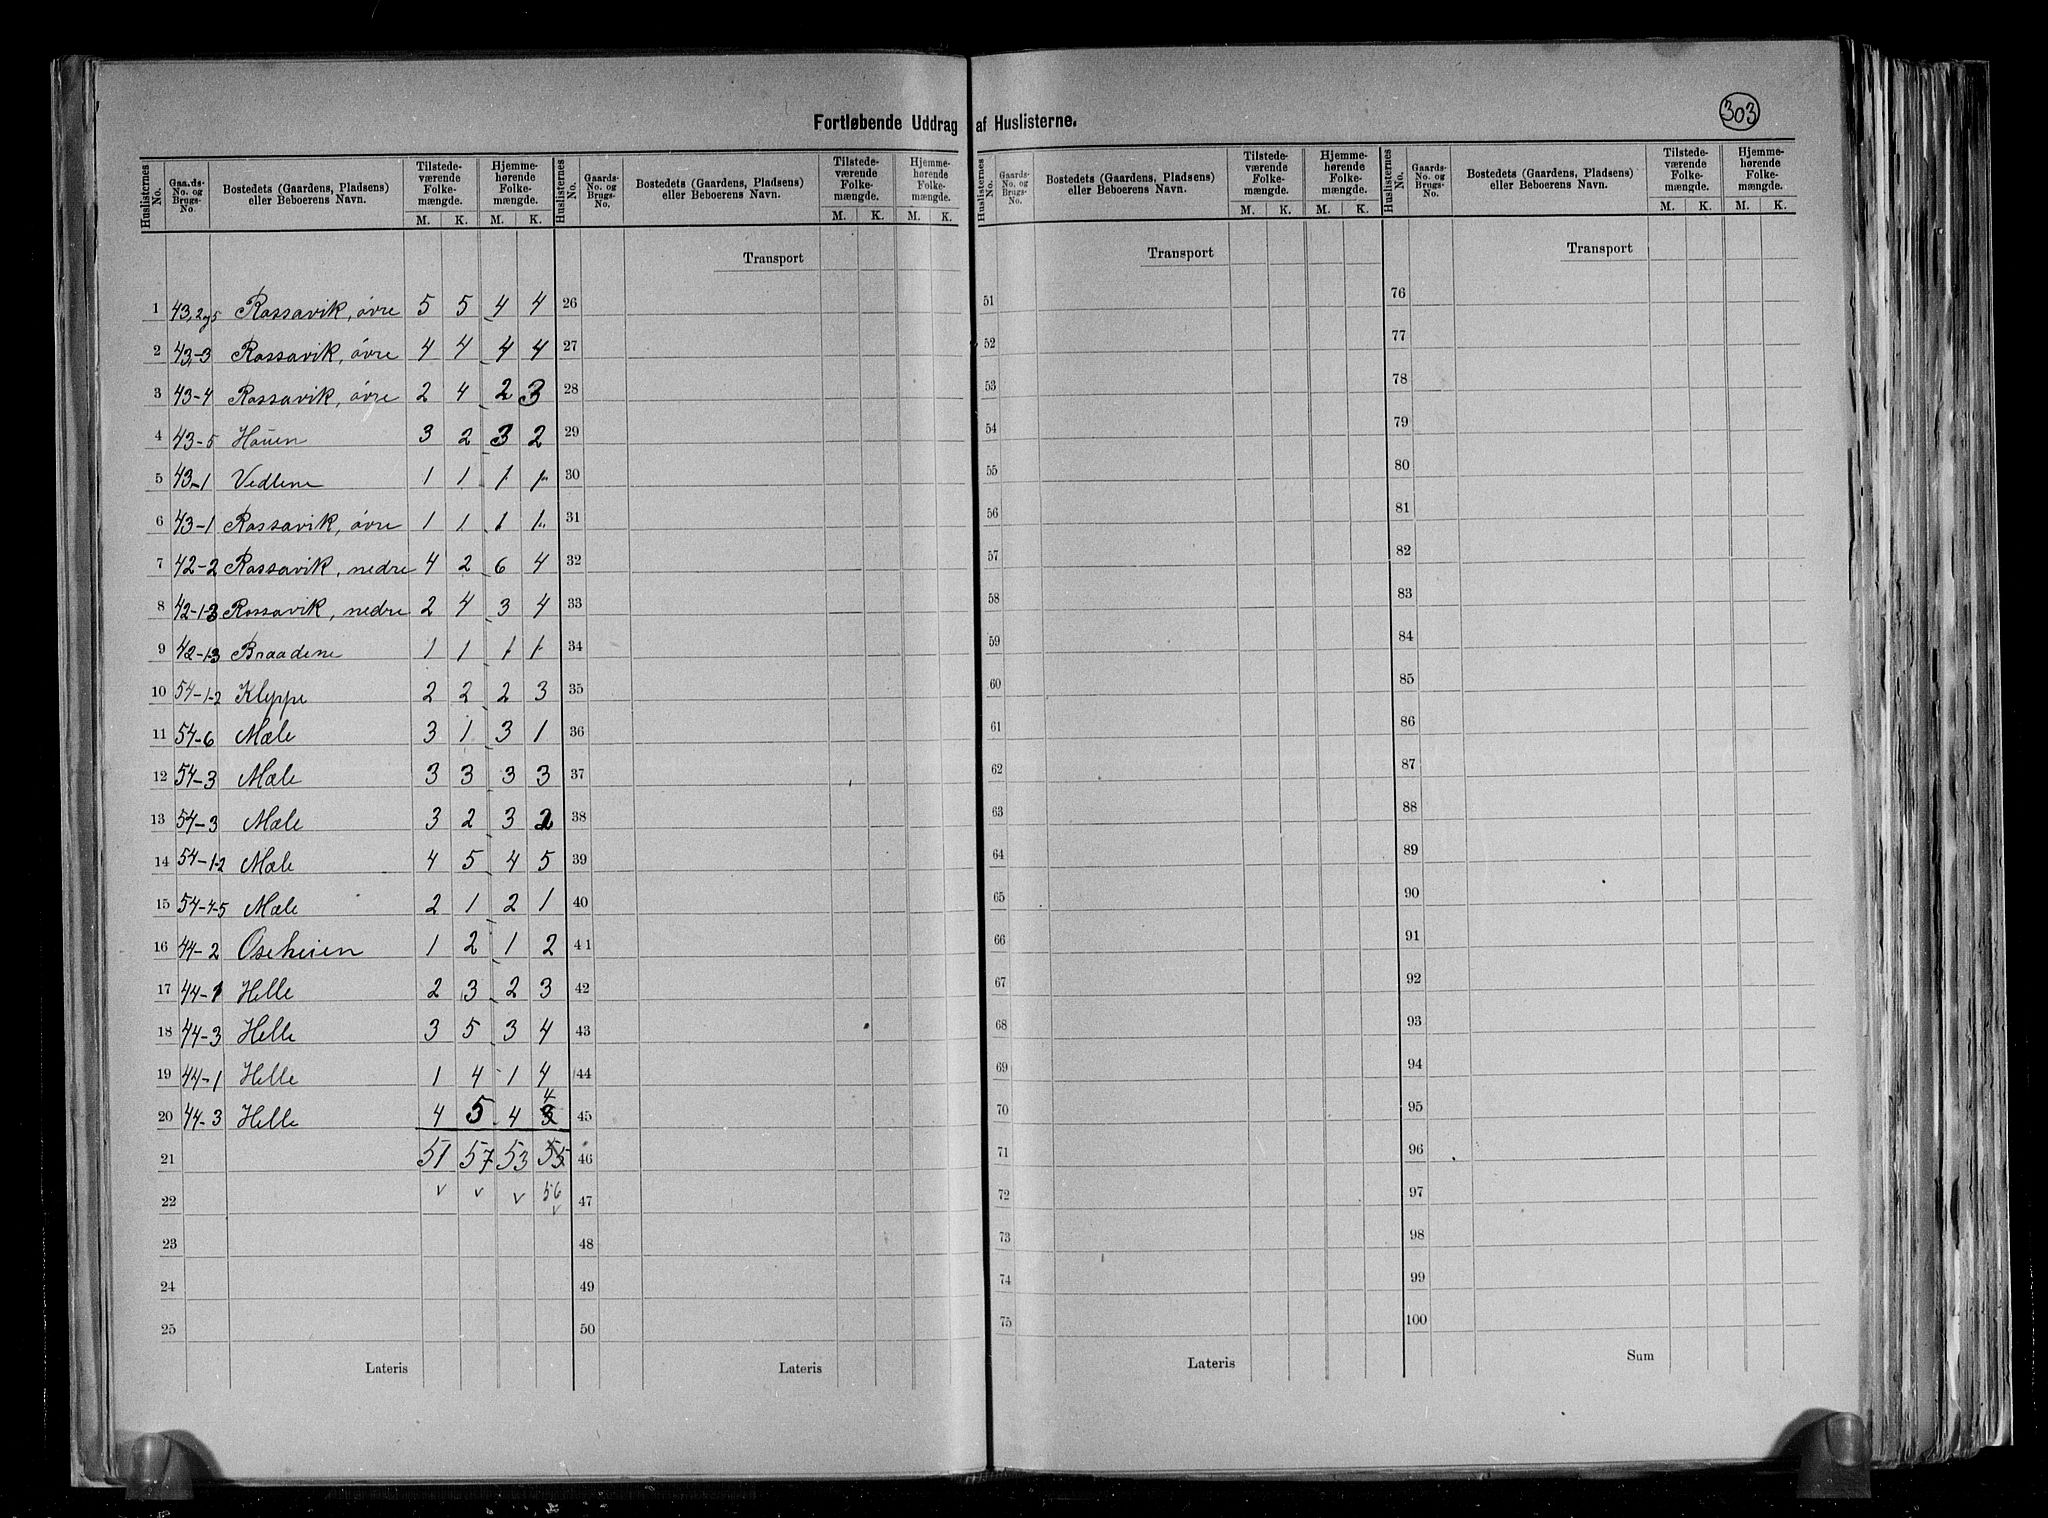 303
Fortløbende Uddrag af Huslisterne.
Huslisternes No. | Gaards-No. og Brugs-No. | Bostedets (Gaardens, Pladsens) eller Beboerens Navn. | Tilstedeværende Folkemængde. M. K. | Hjemmehørende Folkemængde. M. K.
Huslisternes No. | Gaards-No. og Brugs-No. | Bostedets (Gaardens, Pladsens) eller Beboerens Navn. | Tilstedeværende Folkemængde. M. K. | Hjemmehørende Folkemængde. M. K.
Huslisternes No. | Gaards-No. og Brugs-No. | Bostedets (Gaardens, Pladsens) eller Beboerens Navn. | Tilstedeværende Folkemængde. M. K. | Hjemmehørende Folkemængde. M. K.
Huslisternes No. | Gaards-No. og Brugs-No. | Bostedets (Gaardens, Pladsens) eller Beboerens Navn. | Tilstedeværende Folkemængde. M. K. | Hjemmehørende Folkemængde. M. K.
Transport Transport Transport
1 43,2og5 Rossavik, övre 5 5 4 4 26 51 76
2 43-3 Rossavik, övre 4 4 4 4 27 52 77
3 43-4 Rossavik, övre 2 4 2 3 28 53 78
4 43-5 Houen 3 2 3 2 29 54 79
5 43-1 Vedlene 1 1 1 1 30 55 80
6 43-1 Rossavik, övre 1 1 1 1 31 56 81
7 42-2 Rossavik, nedre 4 2 6 4 32 57 82
8 42-1-3 Rossavik, nedre 2 4 3 4 33 58 83
9 42-1-3 Braadene 1 1 1 1 34 59 84
10 54-1-2 Kleppe 2 2 2 3 35 60 85
11 54-6 Mæle 3 1 3 1 36 61 86
12 54-3 Mæle 3 3 3 3 37 62 87
13 54-3 Mæle 3 2 3 2 38 63 88
14 54-1-2 Mæle 4 5 4 5 39 64 89
15 54-4-5 Mæle 2 1 2 1 40 65 90
16 44-2 Oseheien 1 2 1 2 41 66 91
17 44-1 Helle 2 3 2 3 42 67 92
18 44-3 Helle 3 5 3 4 43 68 93
19 44-1 Helle 1 4 1 4 44 69 94
20 44-3 Helle 4 5 4 3 4 45 70 95
21 51 57 53 55 46 71 96
22 v v v 56 v 47 72 97
23 48 73 98
24 49 74 99
25 50 75 100
Lateris Lateris Lateris Sum